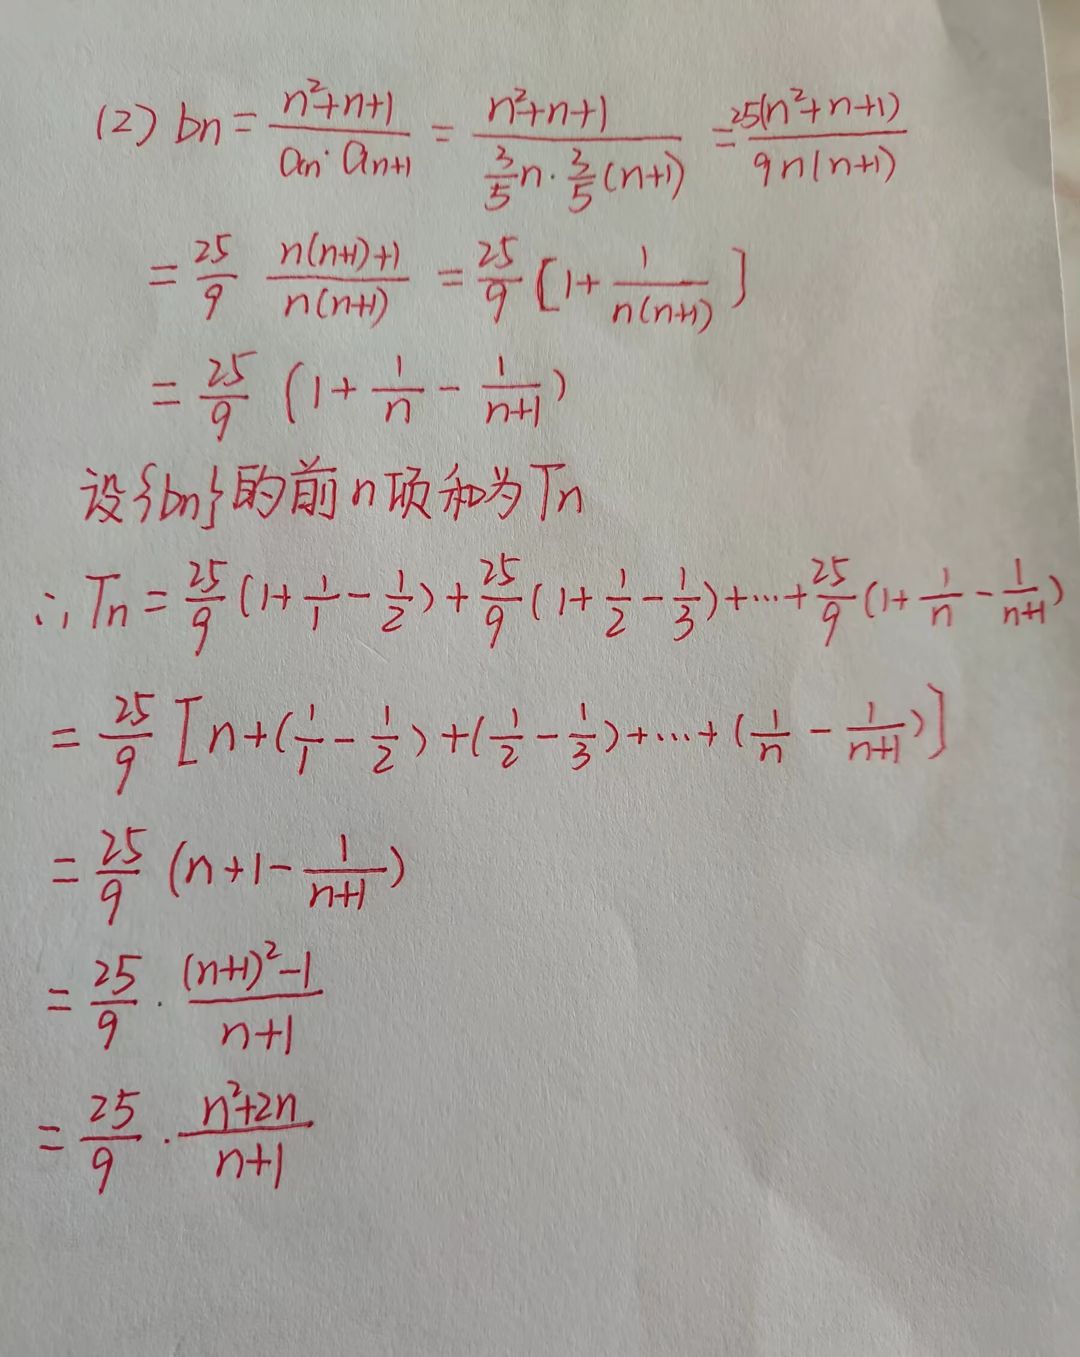 (2) bn = (n²+n+1)/(an·an+1) = (n²+n+1)/(3/5 n · 3/5 (n+1)) = 25(n²+n+1)/(9n(n+1))
= 25/9 (n(n+1)+1)/(n(n+1)) = 25/9 [1+ 1/(n(n+1))]
= 25/9 (1+ 1/n - 1/(n+1))
设{bn}的前n项和为Tn
∴Tn = 25/9 (1+ 1/1 - 1/2) + 25/9 (1+ 1/2 - 1/3) +…+ 25/9 (1+ 1/n - 1/(n+1))
= 25/9 [n+(1/1 - 1/2)+(1/2 - 1/3)+…+(1/n - 1/(n+1))]
= 25/9 (n+1- 1/(n+1))
= 25/9 · ((n+1)²-1)/(n+1)
= 25/9 · (n²+2n)/(n+1)